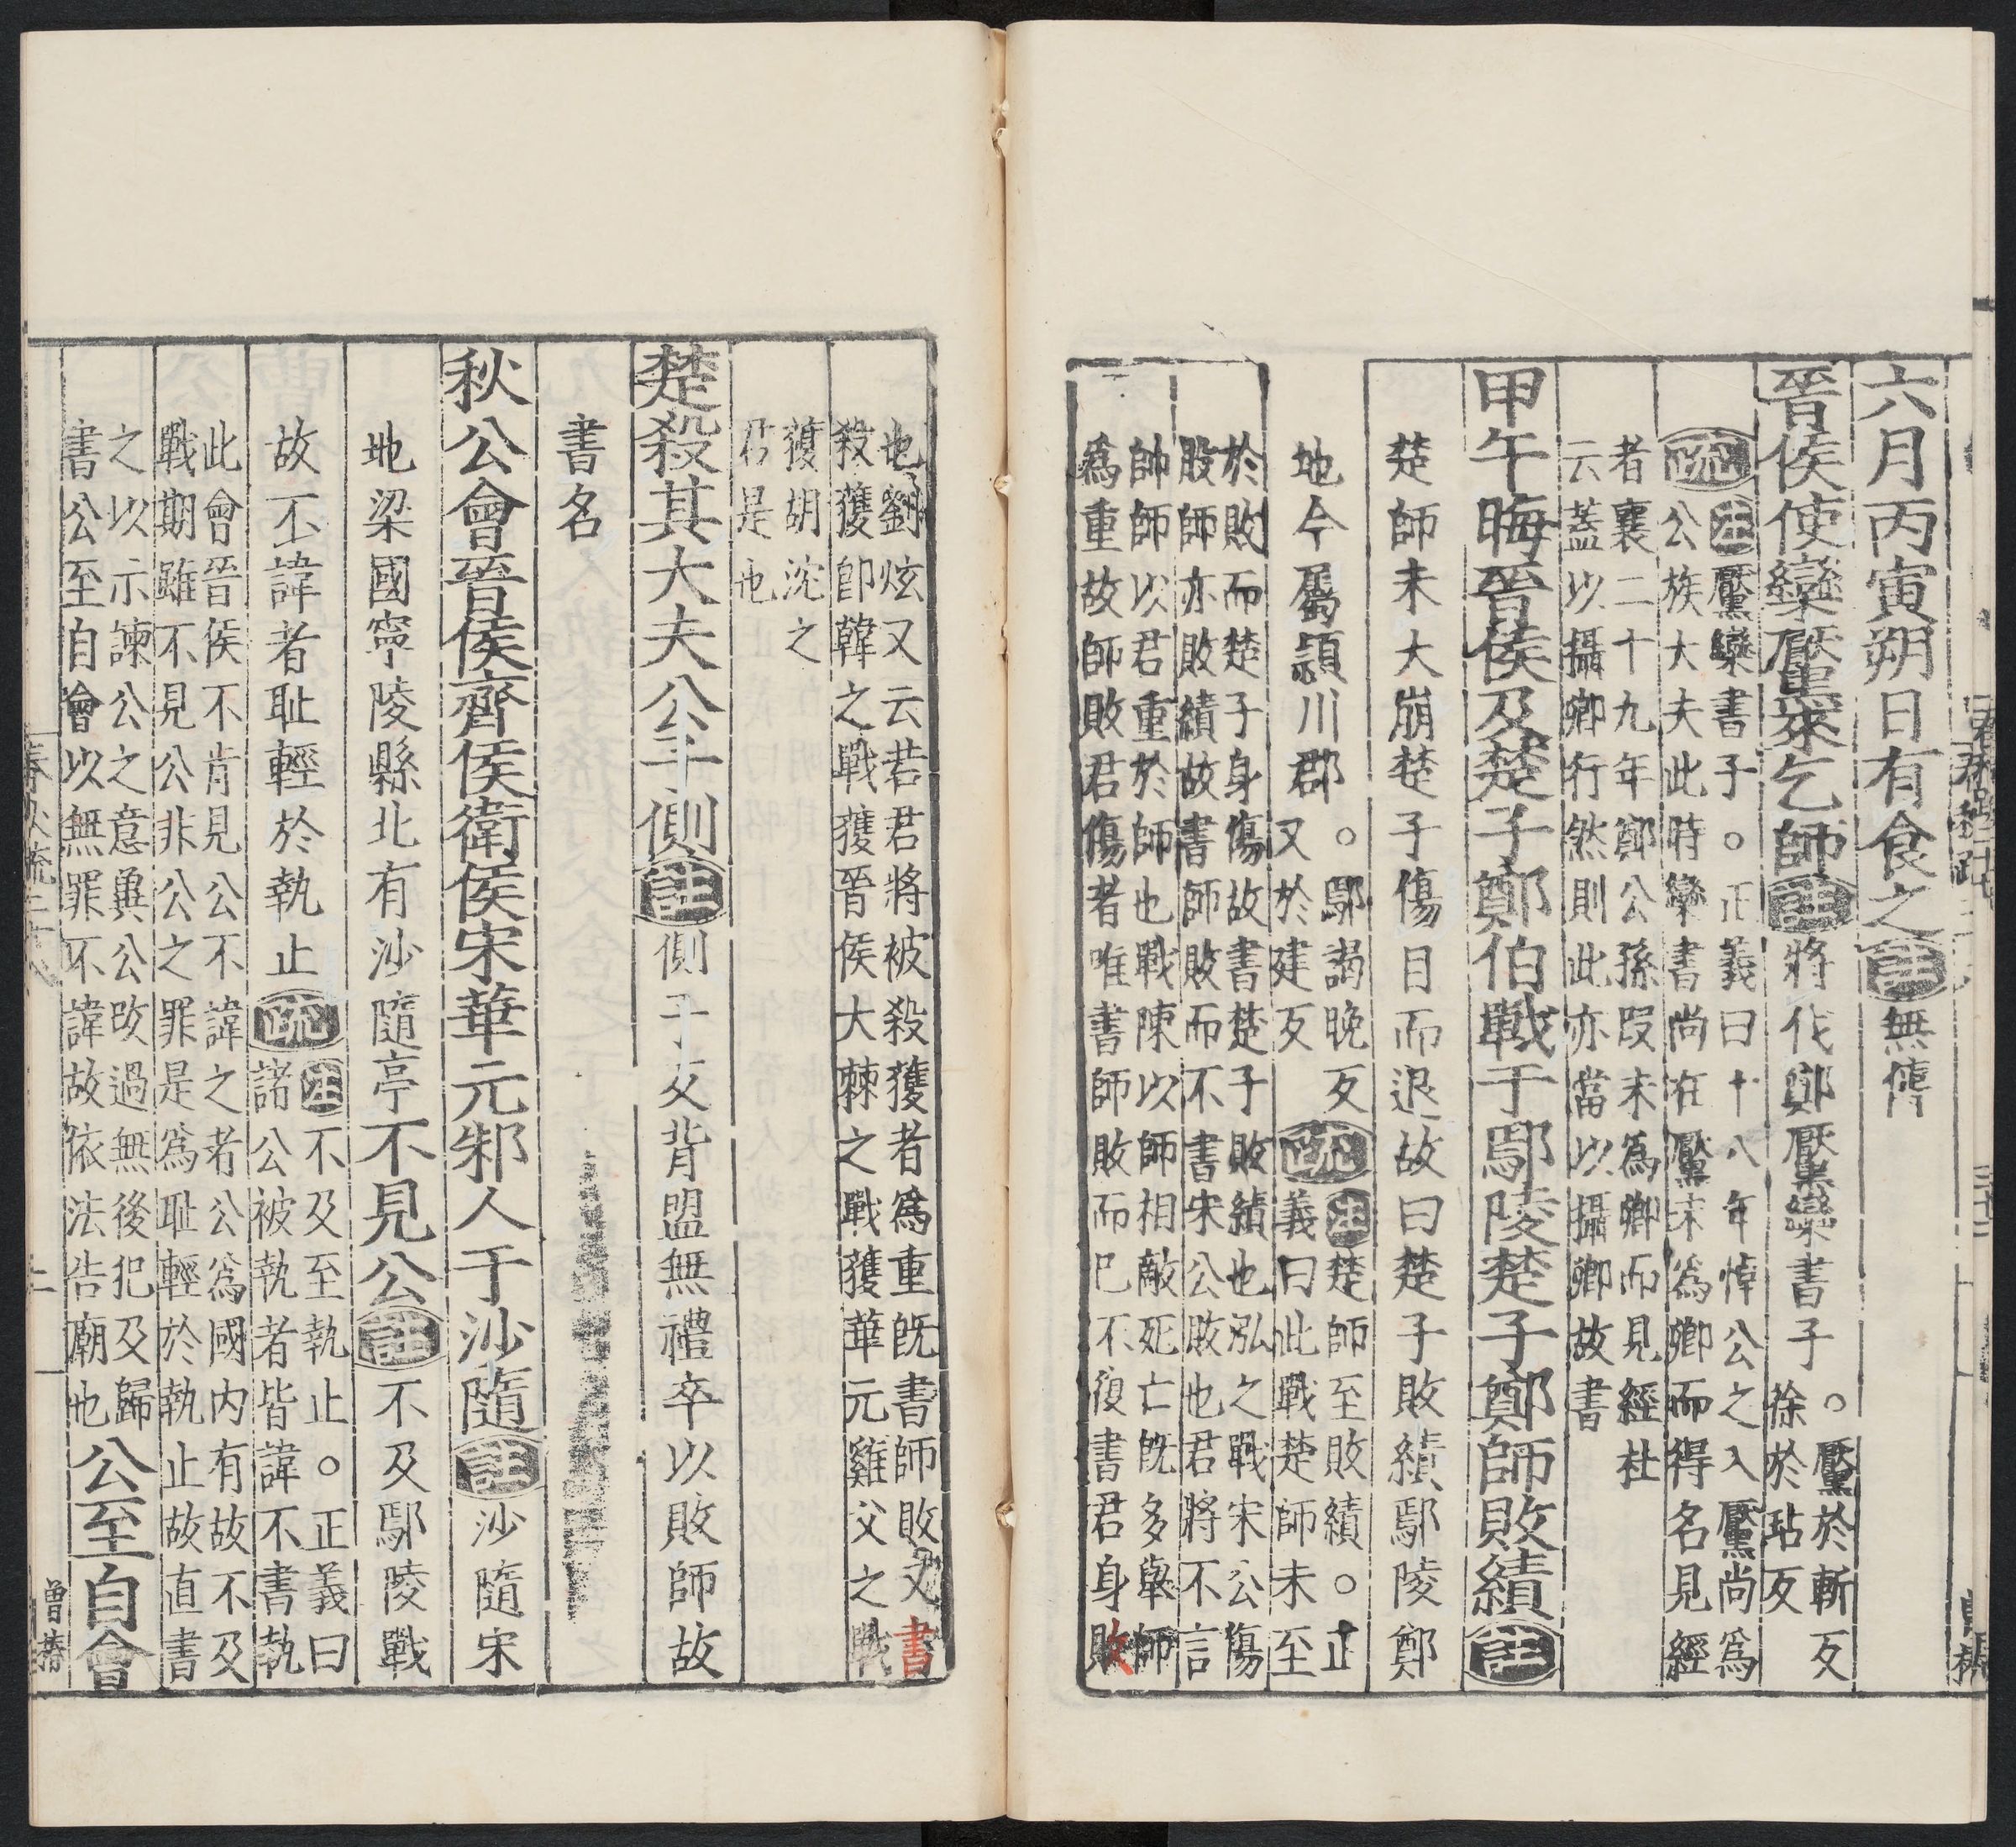 六月丙寅朔日有食之註無傳
晉侯使欒黶來乞師註將伐鄭黶欒書子。黶於斬反
徐於玷反
疏注黶欒書子。正義曰十八年悼公之入黶尚爲
公族大夫此時欒書尚在黶未爲卿而得名見經
者襄二十九年鄭公孫段未爲卿而見經杜
云蓋以攝卿行然則此亦當以攝卿故書
甲午晦晉侯及楚子鄭伯戰于鄢陵楚子鄭師敗績註
楚師未大崩楚子傷目而退故曰楚子敗績鄢陵鄭
地今屬潁川郡。鄢謁晚反
又於建反
疏注楚師至敗績。正
義曰此戰楚師未至
於敗而楚子身傷故書楚子敗績也泓之戰宋公傷
股師亦敗績故書師敗而不書宋公敗也君將不言
帥師以君重於師也戰陳以師相敵死亡旣多舉師
爲重故師敗君傷者唯書師敗而巳不復書君身敗
也劉炫又云若君將被殺獲者爲重旣書師敗又書
殺獲卽韓之戰獲晉侯大棘之戰獲華元雞父之戰
獲胡沈之
君是也
楚殺其大夫公子側註側子反背盟無禮卒以敗師故
書名
秋公會晉侯齊侯衛侯宋華元邾人于沙隨註沙隨宋
地梁國寧陵縣北有沙隨亭不見公註不及鄢陵戰
故不諱者耻輕於執止疏注不及至執止。正義曰
諸公被執者皆諱不書執
此會晉侯不肯見公不諱之者公爲國内有故不及
戰期雖不見公非公之罪是爲耻輕於執止故直書
之以示諫公之意冀公改過無後犯及歸
書公至自會以無罪不諱故依法告廟也公至自會
春秋疏二十八
二
曾椿